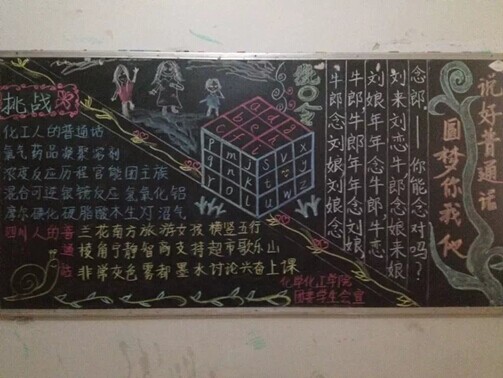 说好普通话
圆梦你我他
念郎——你能念对吗？
刘来刘恋牛郎念娘来娘
刘娘年年念牛郎，牛恋
牛郎牛年年年念刘娘，
牛郎念刘娘刘娘念
挑战
化工人的普通话
氯气药品凝聚溶剂
浓度反应历程官能团主族
混合可逆银镜反应氢氧化铝
摩尔硬化硬脂酸木生灯沼气
四川人的普通话
兰花南方旅游女孩横竖五行
棱角宁静智商支持超市歌乐山
非常灰色雾都墨水讨论兴奋上课
化学化工学院
团委学生会宣
a d
p m j g
q n k h
r o l i
s v
t w
u